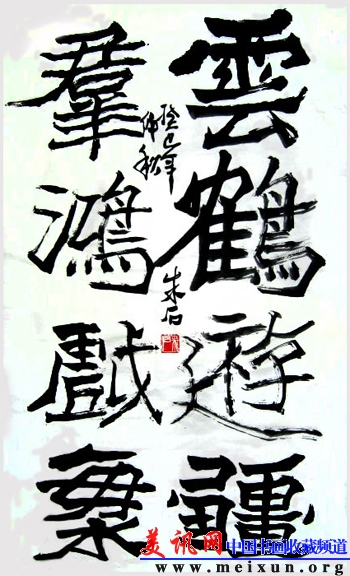 雲鶴遊
羣鴻戲海
癸巳年
仲秋
朱石
美讯网 中国书画收藏频道
www.meixun.org